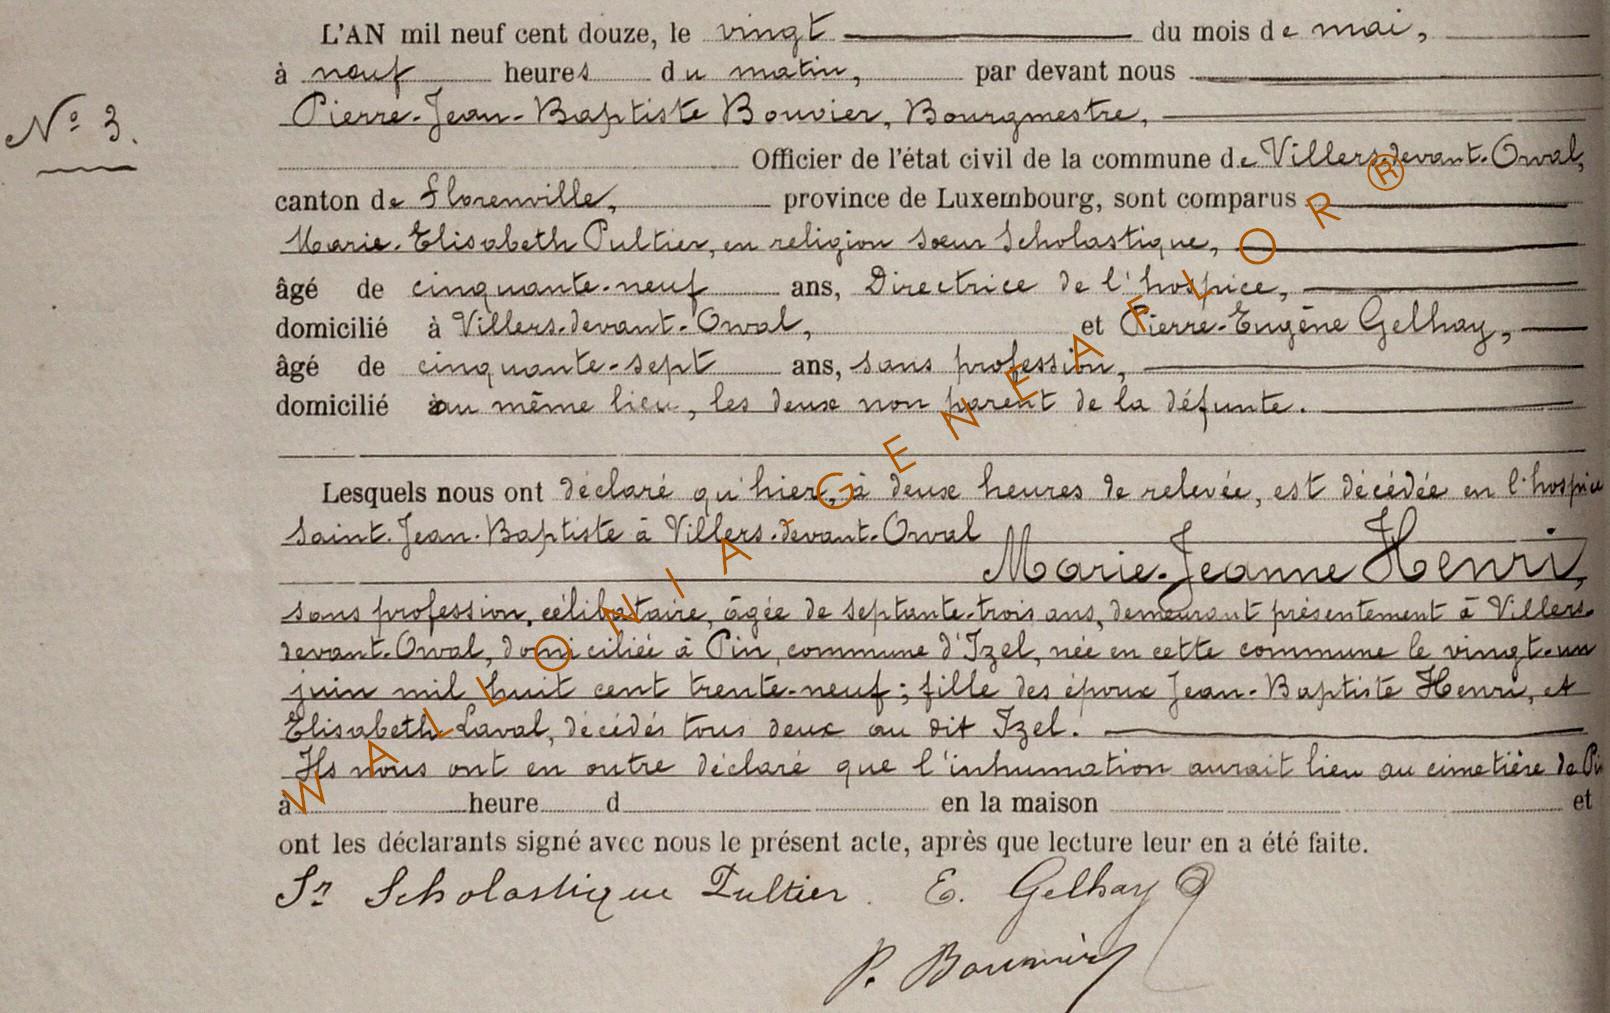 L'AN mil neuf cent douze, le vingt du mois de mai,
à neuf heures du matin, par devant nous
Pierre-Jean-Baptiste Bouvier, Bourgmestre,
N° 3.
Officier de l'état civil de la commune de Villers-devant-Orval,
canton de Florenville, province de Luxembourg, sont comparus
Marie-Elisabeth Pultier, en religion sœur Scholastique,
âgé de cinquante-neuf ans, Directrice de l'hospice,
domicilié à Villers-devant-Orval, et Pierre-Eugène Gelhay,
âgé de cinquante-sept ans, sans profession,
domicilié au même lieu, les deux non parent de la défunte.
Lesquels nous ont déclaré qu'hier, à deux heures de relevée, est décédée en l'hospice
Saint-Jean-Baptiste à Villers-devant-Orval
Marie-Jeanne Henri,
sans profession, célibataire, âgée de septante-trois ans, demeurant présentement à Villers-
devant-Orval, domiciliée à Pin, commune d'Izel, née en cette commune le vingt-un
juin mil huit cent trente-neuf ; fille des époux Jean-Baptiste Henri, et
Elisabeth Laval, décédés tous deux au dit Izel.
Ils nous ont en outre déclaré que l'inhumation aurait lieu au cimetière de Pin
à heure d en la maison et
ont les déclarants signé avec nous le présent acte, après que lecture leur en a été faite.
Sr Scholastique Pultier. E. Gelhay
P. Bouvier
WALLONIA-GENEAFLOR®